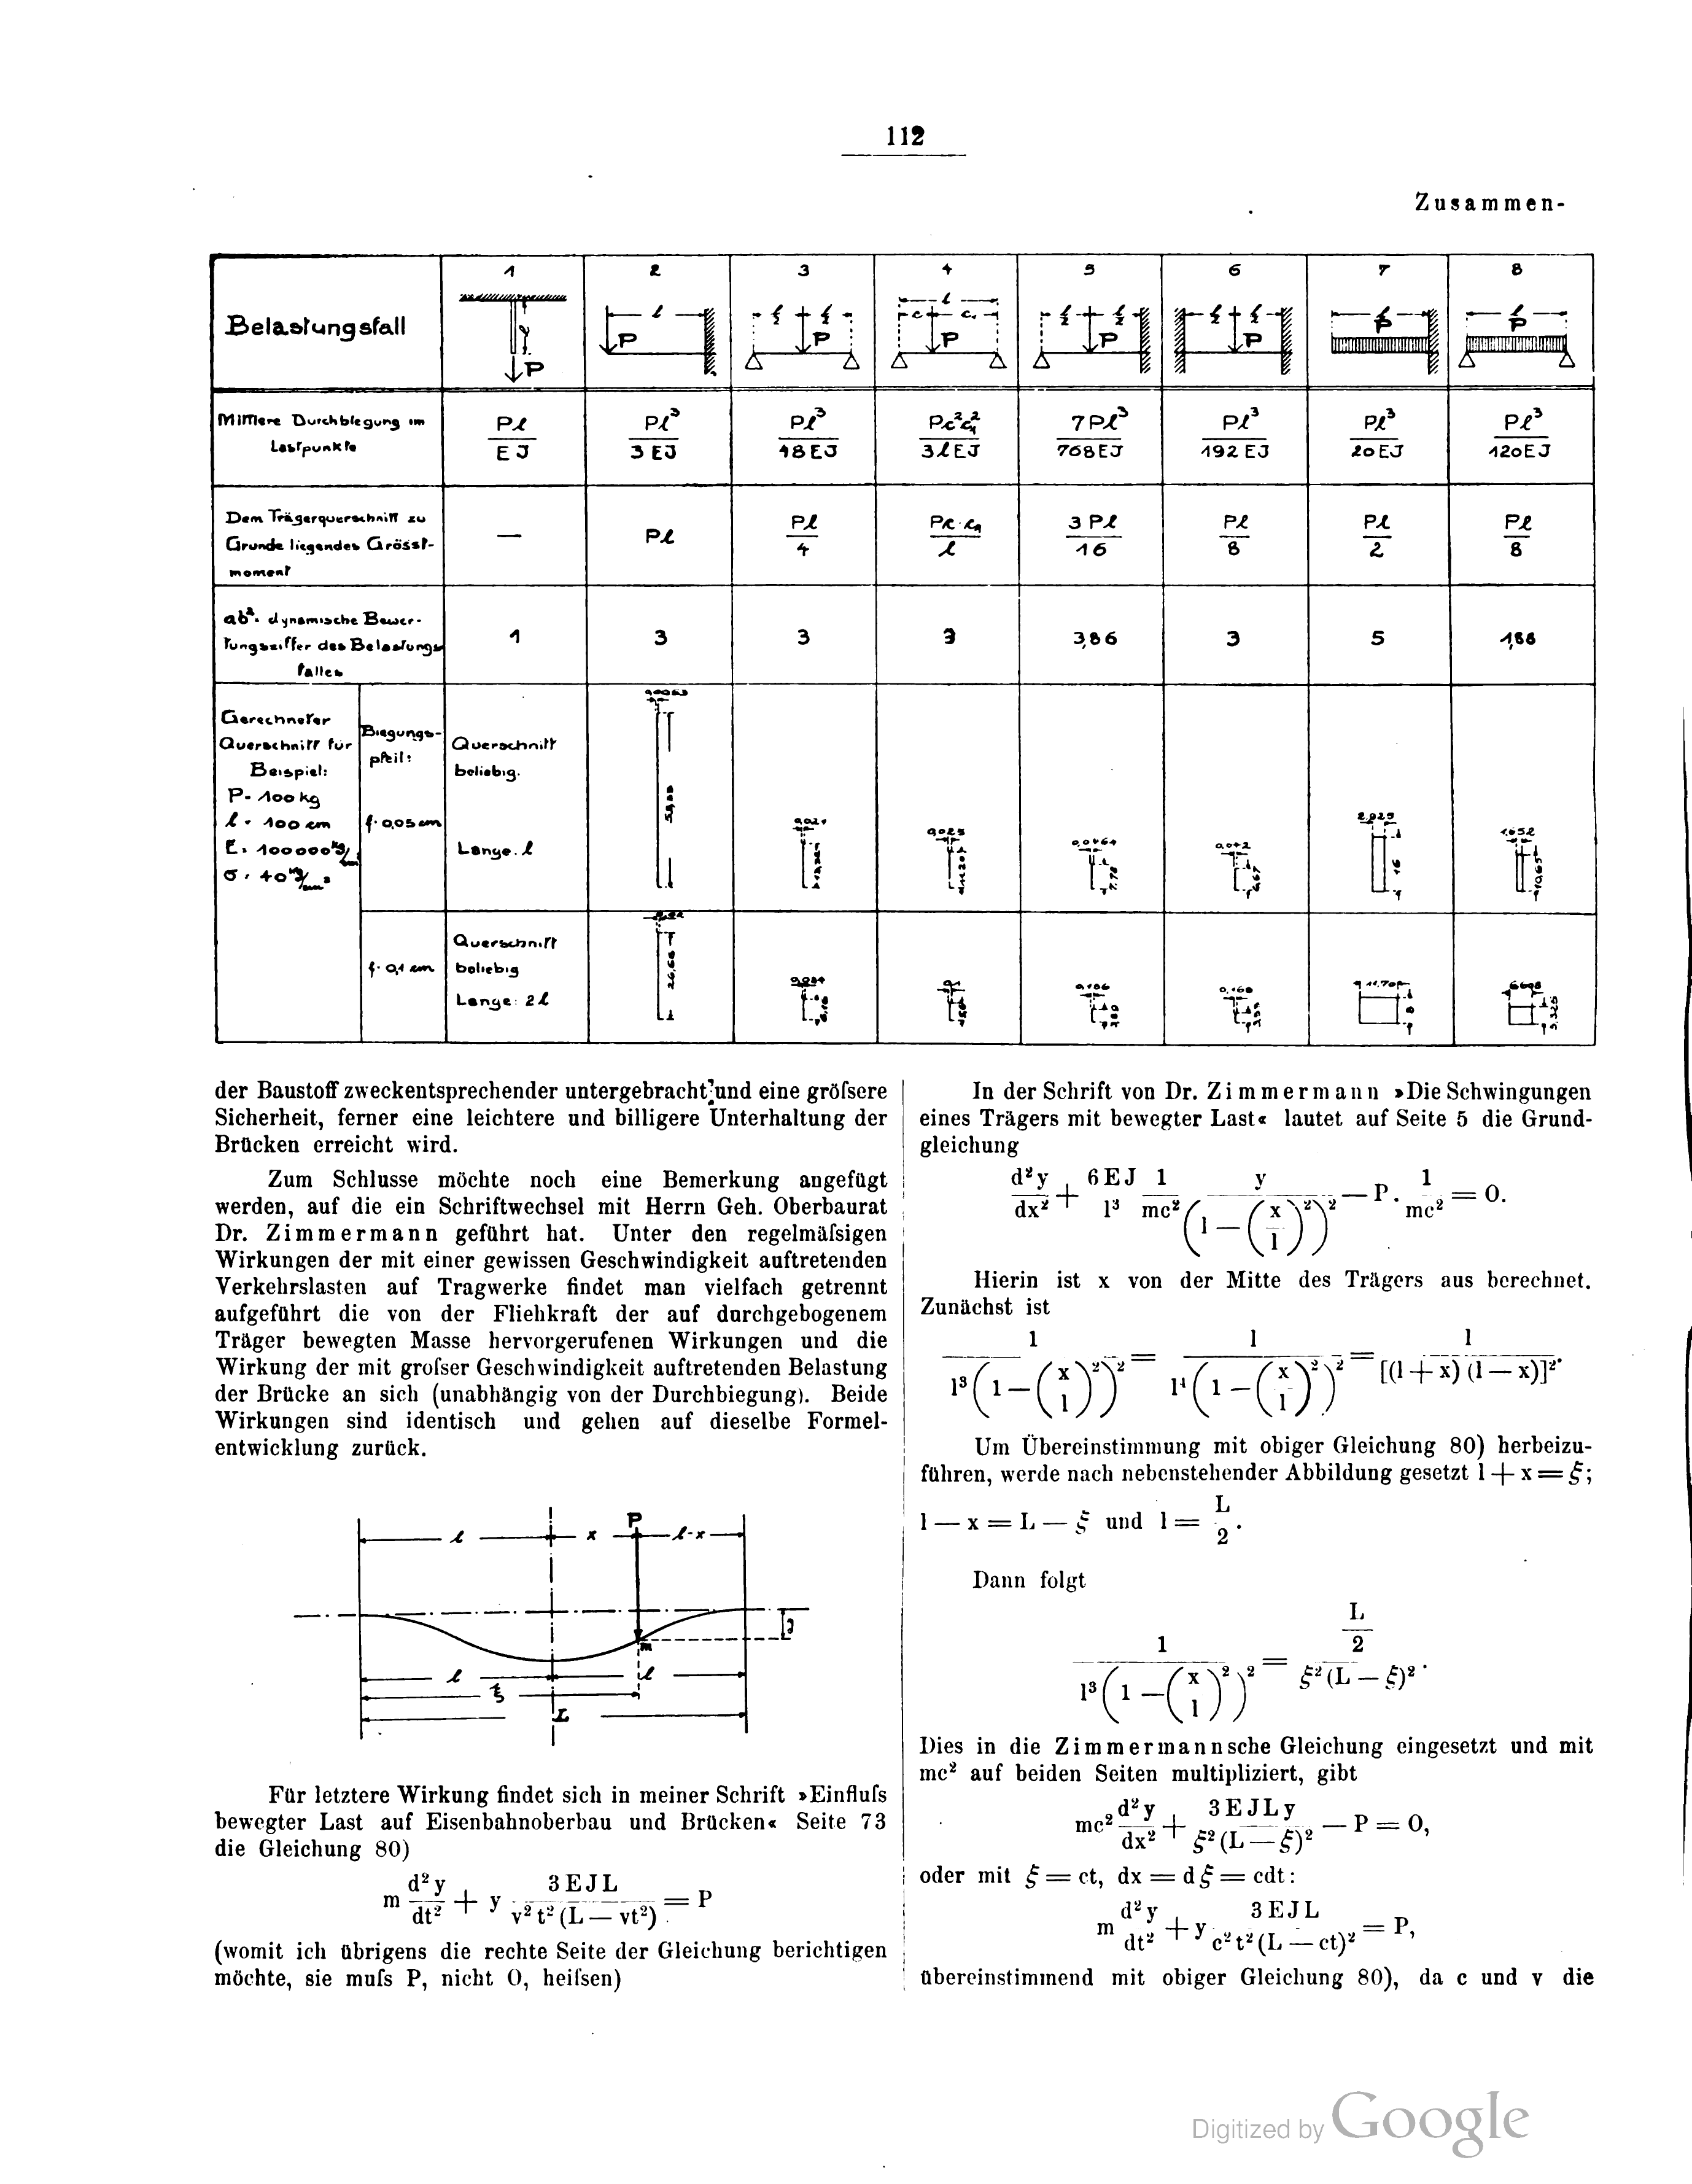 112
Zusammen-
Belastungsfall
1 2 3 4 5 6 7 8
l P
l P
l/2 l/2 P
l c c₁ P
l/2 l/2 P
l/2 l/2 P
l P
l P
Mittlere Durchbiegung im
Lastpunkte
Pl/EJ Pl³/3EJ Pl³/48EJ Pc²c₁²/3lEJ 7Pl³/768EJ Pl³/192EJ Pl³/20EJ Pl³/120EJ
Dem Trägerquerschnitt zu
Grunde liegendes Grösst-
moment
— Pl Pl/4 Pc·c₁/l 3Pl/16 Pl/8 Pl/2 Pl/8
ab² = dynamische Bewer-
tungsziffer des Belastungs
falles
1 3 3 3 3,86 3 5
Gerechneter
Querschnitt für
Beispiel:
P = 100 kg
l = 100 cm
E = 100000 kg/cm
σ = 40 kg/cm²
Biegungs-
pfeil:
f = 0,05 cm
Querschnitt
beliebig.
Länge: l
0,025
0,0464
7,78
0,042
6,67
2,925
16
1,652
10,65
f = 0,1 cm
Querschnitt
beliebig
Länge: 2l
26,66
11,70
8
6,608
5,325
der Baustoff zweckentsprechender untergebracht und eine gröfsere
Sicherheit, ferner eine leichtere und billigere Unterhaltung der
Brücken erreicht wird.
Zum Schlusse möchte noch eine Bemerkung angefügt
werden, auf die ein Schriftwechsel mit Herrn Geh. Oberbaurat
Dr. Zimmermann geführt hat. Unter den regelmäfsigen
Wirkungen der mit einer gewissen Geschwindigkeit auftretenden
Verkehrslasten auf Tragwerke findet man vielfach getrennt
aufgeführt die von der Fliehkraft der auf durchgebogenem
Träger bewegten Masse hervorgerufenen Wirkungen und die
Wirkung der mit grofser Geschwindigkeit auftretenden Belastung
der Brücke an sich (unabhängig von der Durchbiegung). Beide
Wirkungen sind identisch und gehen auf dieselbe Formel-
entwicklung zurück.
l x P l-x
m
l l
ξ
L
Für letztere Wirkung findet sich in meiner Schrift »Einflufs
bewegter Last auf Eisenbahnoberbau und Brücken« Seite 73
die Gleichung 80)
m d²y/dt² + y 3EJL/v²t²(L — vt²) = P
(womit ich übrigens die rechte Seite der Gleichung berichtigen
möchte, sie mufs P, nicht O, heifsen)
In der Schrift von Dr. Zimmermann »Die Schwingungen
eines Trägers mit bewegter Last« lautet auf Seite 5 die Grund-
gleichung
d²y/dx² + 6EJ/l³ 1/mc² y/(1 — (x/l)²)² — P. 1/mc² = O.
Hierin ist x von der Mitte des Trägers aus berechnet.
Zunächst ist
1/l³(1 — (x/l)²)² = l/l⁴(1 — (x/l)²)² = l/[(l + x) (l — x)]².
Um Übereinstimmung mit obiger Gleichung 80) herbeizu-
führen, werde nach nebenstehender Abbildung gesetzt l + x = ξ;
l — x = L — ξ und l = L/2.
Dann folgt
1/l³(1 — (x/l)²)² = L/2 / ξ²(L — ξ)².
Dies in die Zimmermannsche Gleichung eingesetzt und mit
mc² auf beiden Seiten multipliziert, gibt
mc² d²y/dx² + 3EJLy/ξ²(L — ξ)² — P = O,
oder mit ξ = ct, dx = dξ = cdt:
m d²y/dt² + y 3EJL/c²t²(L — ct)² = P,
übereinstimmend mit obiger Gleichung 80), da c und v die
Digitized by Google